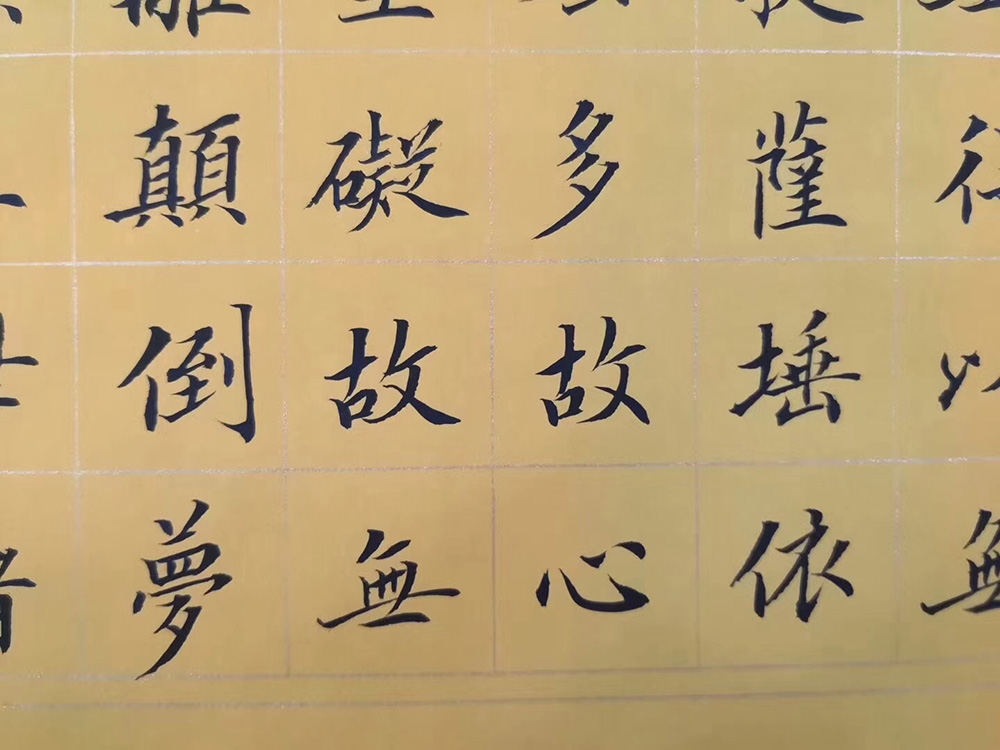 得以無
薩埵依
多故心
礙故無
顛倒夢